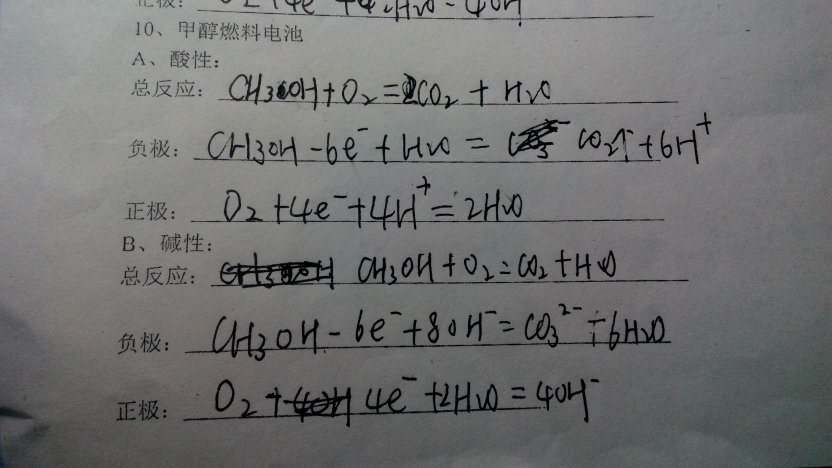 正极: O₂+4e⁻+4H₂O=4OH⁻
10、甲醇燃料电池
A、酸性:
总反应: CH3OH+O₂=CO₂+H₂O
负极: CH3OH-6e⁻+H₂O= CO₂↑+6H⁺
正极: O₂+4e⁻+4H⁺=2H₂O
B、碱性:
总反应: CH3OH+O₂=CO₂+H₂O
负极: CH3OH-6e⁻+8OH⁻=CO₃²⁻+6H₂O
正极: O₂+4e⁻+2H₂O=4OH⁻